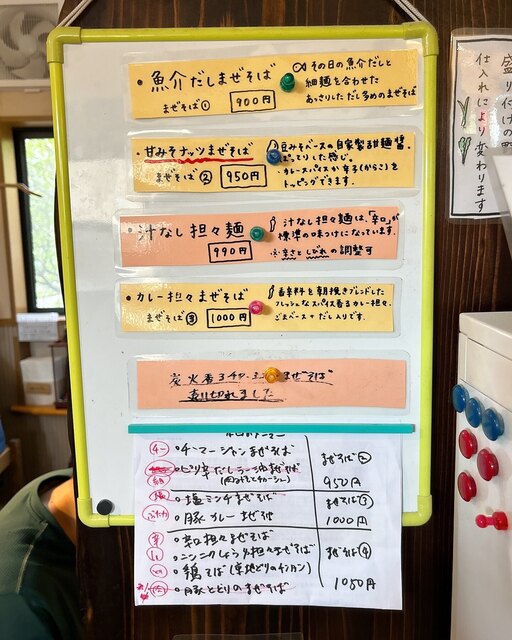 ・魚介だしまぜそば
まぜそば① 900円
その日の魚介だしと
細麺を合わせた
あっさりしただし多めのまぜそば
甘みそナッツまぜそば
まぜそば② 950円
豆みそベースの自家製甜麺醤。
ぽってりした感じ。
・カレースパイスか辛子(からこ)を
トッピングできます。
・汁なし担々麺
990円
汁なし担々麺は、「辛口」が
標準の味つけになっています。
※辛さとしびれの調整可
・カレー担々まぜそば
まぜそば③ 1000円
香辛料を朝挽きブレンドした
フレッシュなスパイス香るカレー担々。
ごまベース+だし入りです。
炭火香る
まぜそば
売り切れました
・チーマージャンまぜそば
まぜそば②
950円
・塩ミンチまぜそば
・豚カレーまぜそば
まぜそば③
1000円
・辛口担々まぜそば
・ニンニクしょうゆ担々まぜそば
・鶏そば
まぜそば④
1050円
・豚ととりのまぜそば
盛り付けの
仕入れにより変わります